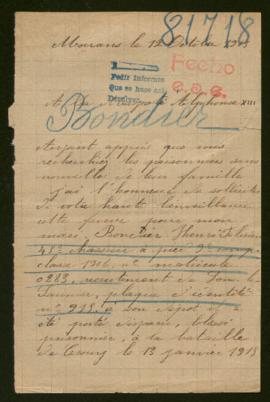 81718
Mourans le 12 Octobre 1915
Pedir informes
Que se hace así
Dévolver
Fecho
A Sa Majesté Alphonse XIII
Bondier
Ayant appris que vous
recherchiez les prisonniers sans
nouvelle de leur famille
j'ai l'honneur de solliciter
de votre haute bienveillance
cette faveur pour mon
mari, Bondier Henri
48e chasseur à pied 9e comp
classe 1906, no matricule
0283, recrutement de Lons le
Saunier, plaque d'identité
no 938. a son dépot il a
été porté disparu, blessé
prisonnier, à la bataille
de Crouy le 13 janvier 1915